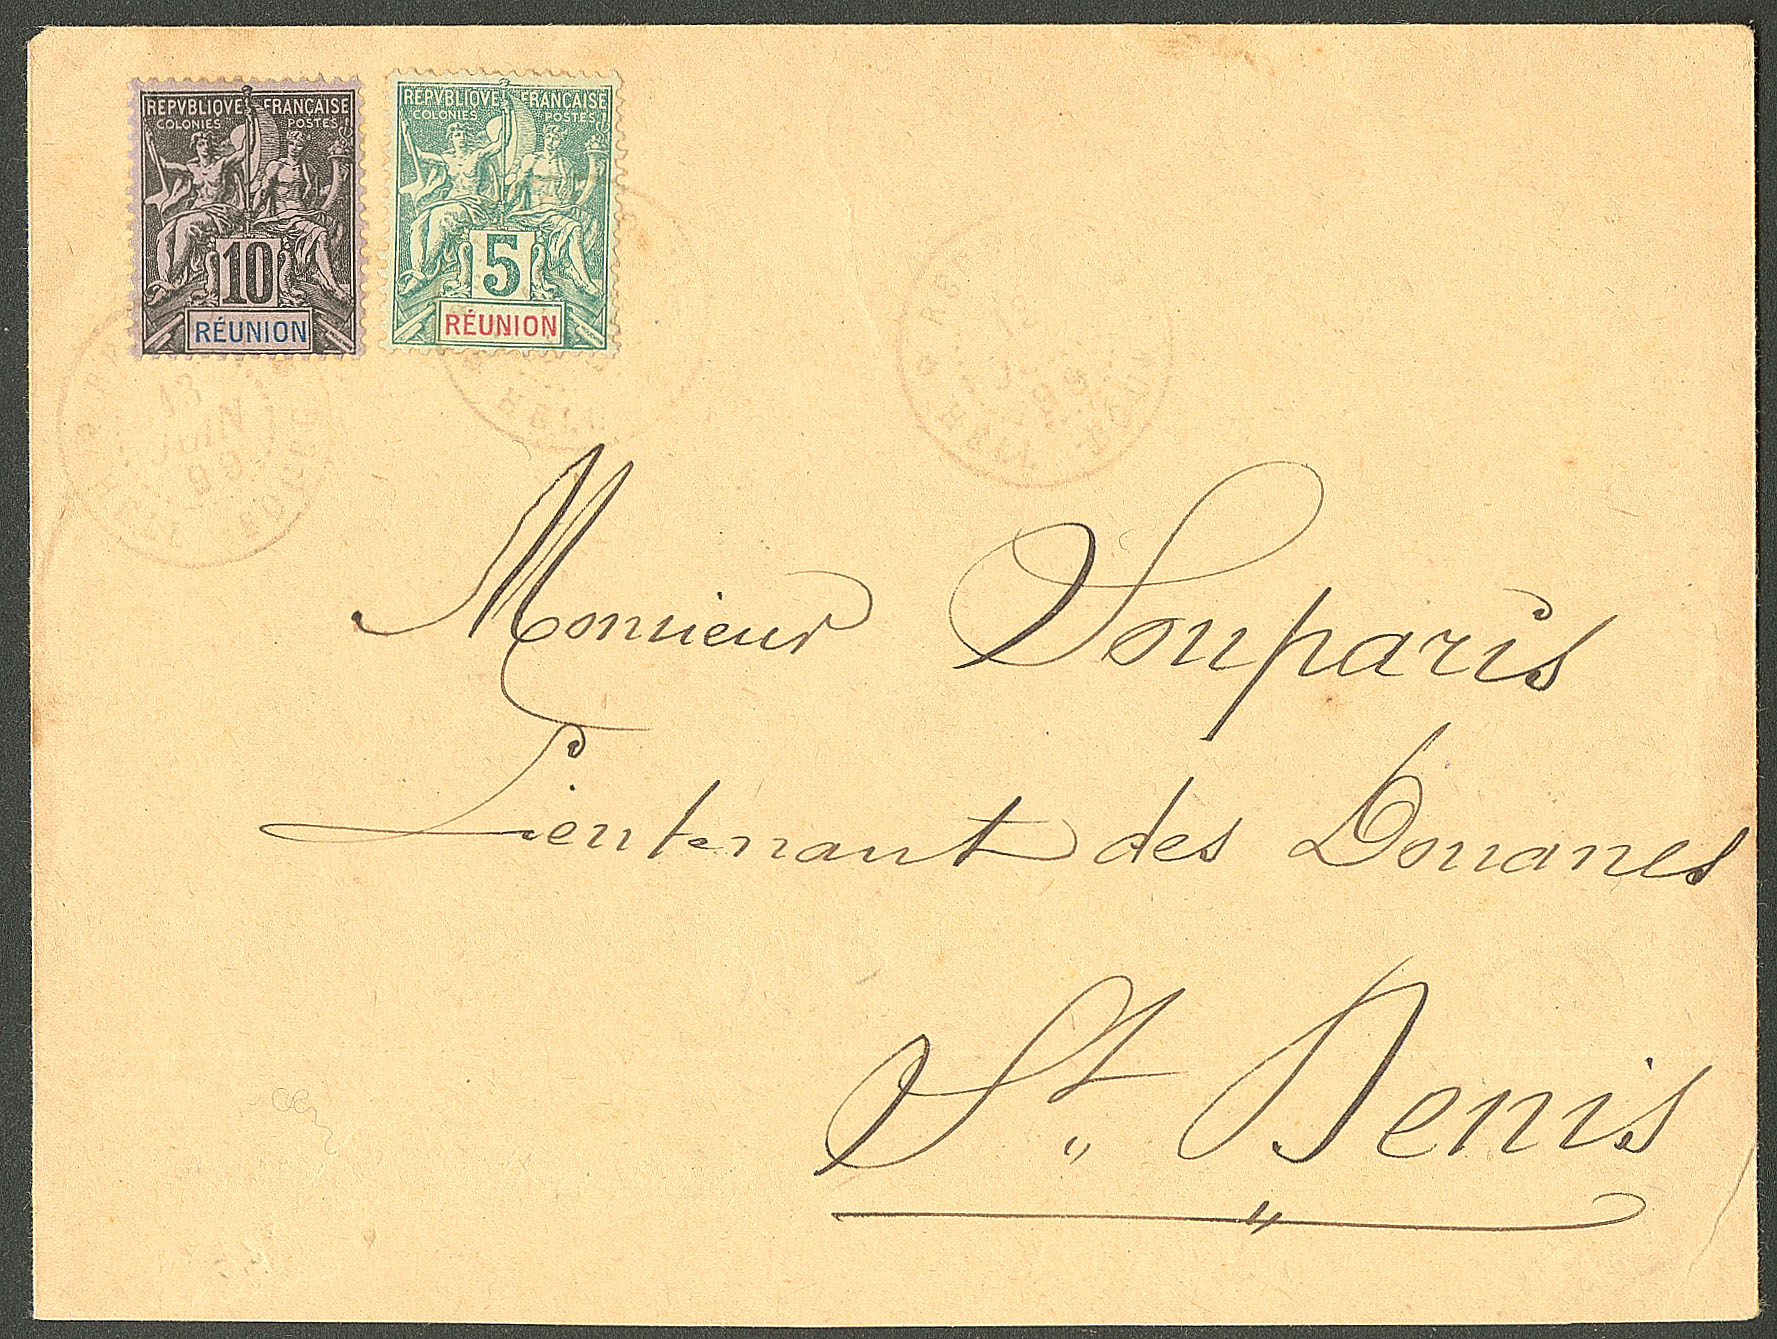 REPVBLIQVE FRANÇAISE
COLONIES POSTES
10
RÉUNION
REPVBLIQVE FRANÇAISE
COLONIES POSTES
5
RÉUNION
13
JUIN
99
Monsieur Souparis
Lieutenant des Douanes
St. Denis